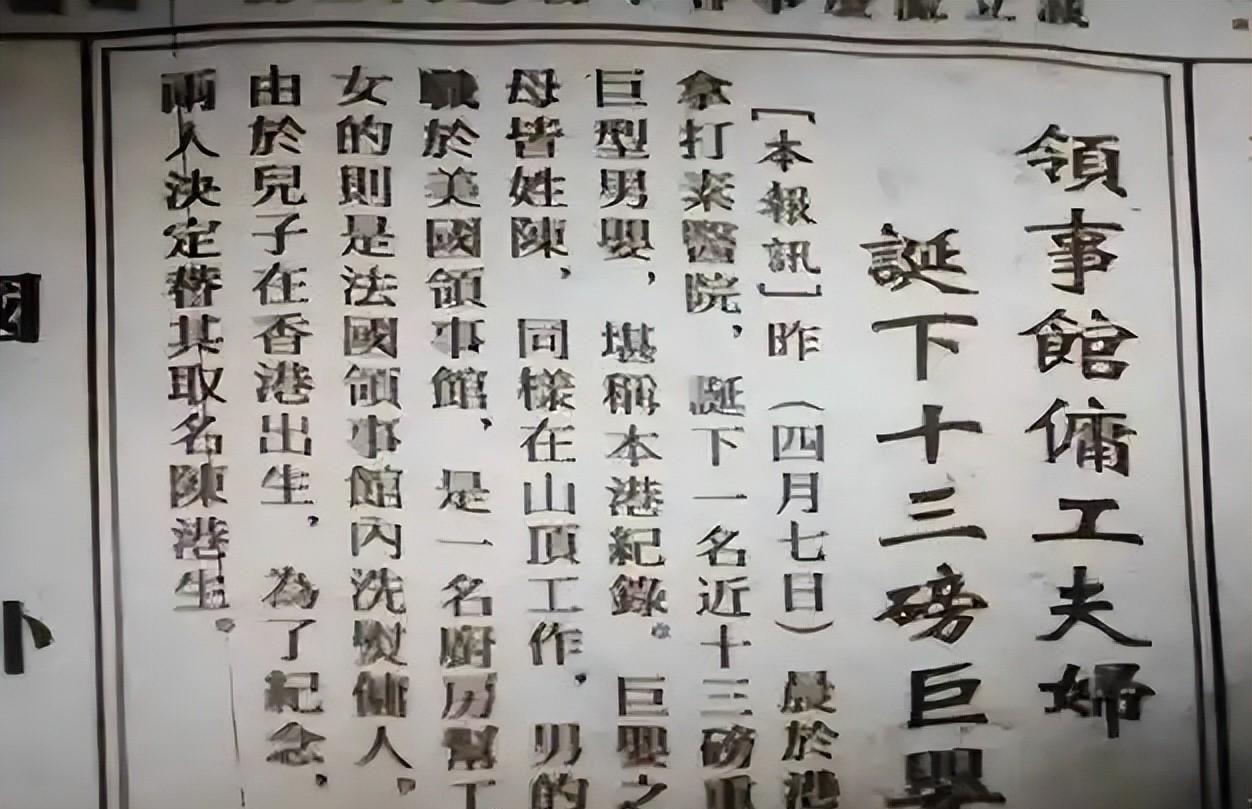 領事館傭工夫婦
誕下十三磅巨嬰
【本報訊】昨（四月七日）晨於港
拿打素醫院，誕下一名近十三磅重
巨型男嬰，堪稱本港紀錄。巨嬰之
母皆姓陳，同樣在山頂工作，男的
職於美國領事館，是一名廚房幫工
女的則是法國領事館內洗熨傭人，
由於兒子在香港出生，為了紀念，
兩人決定替其取名陳港生。